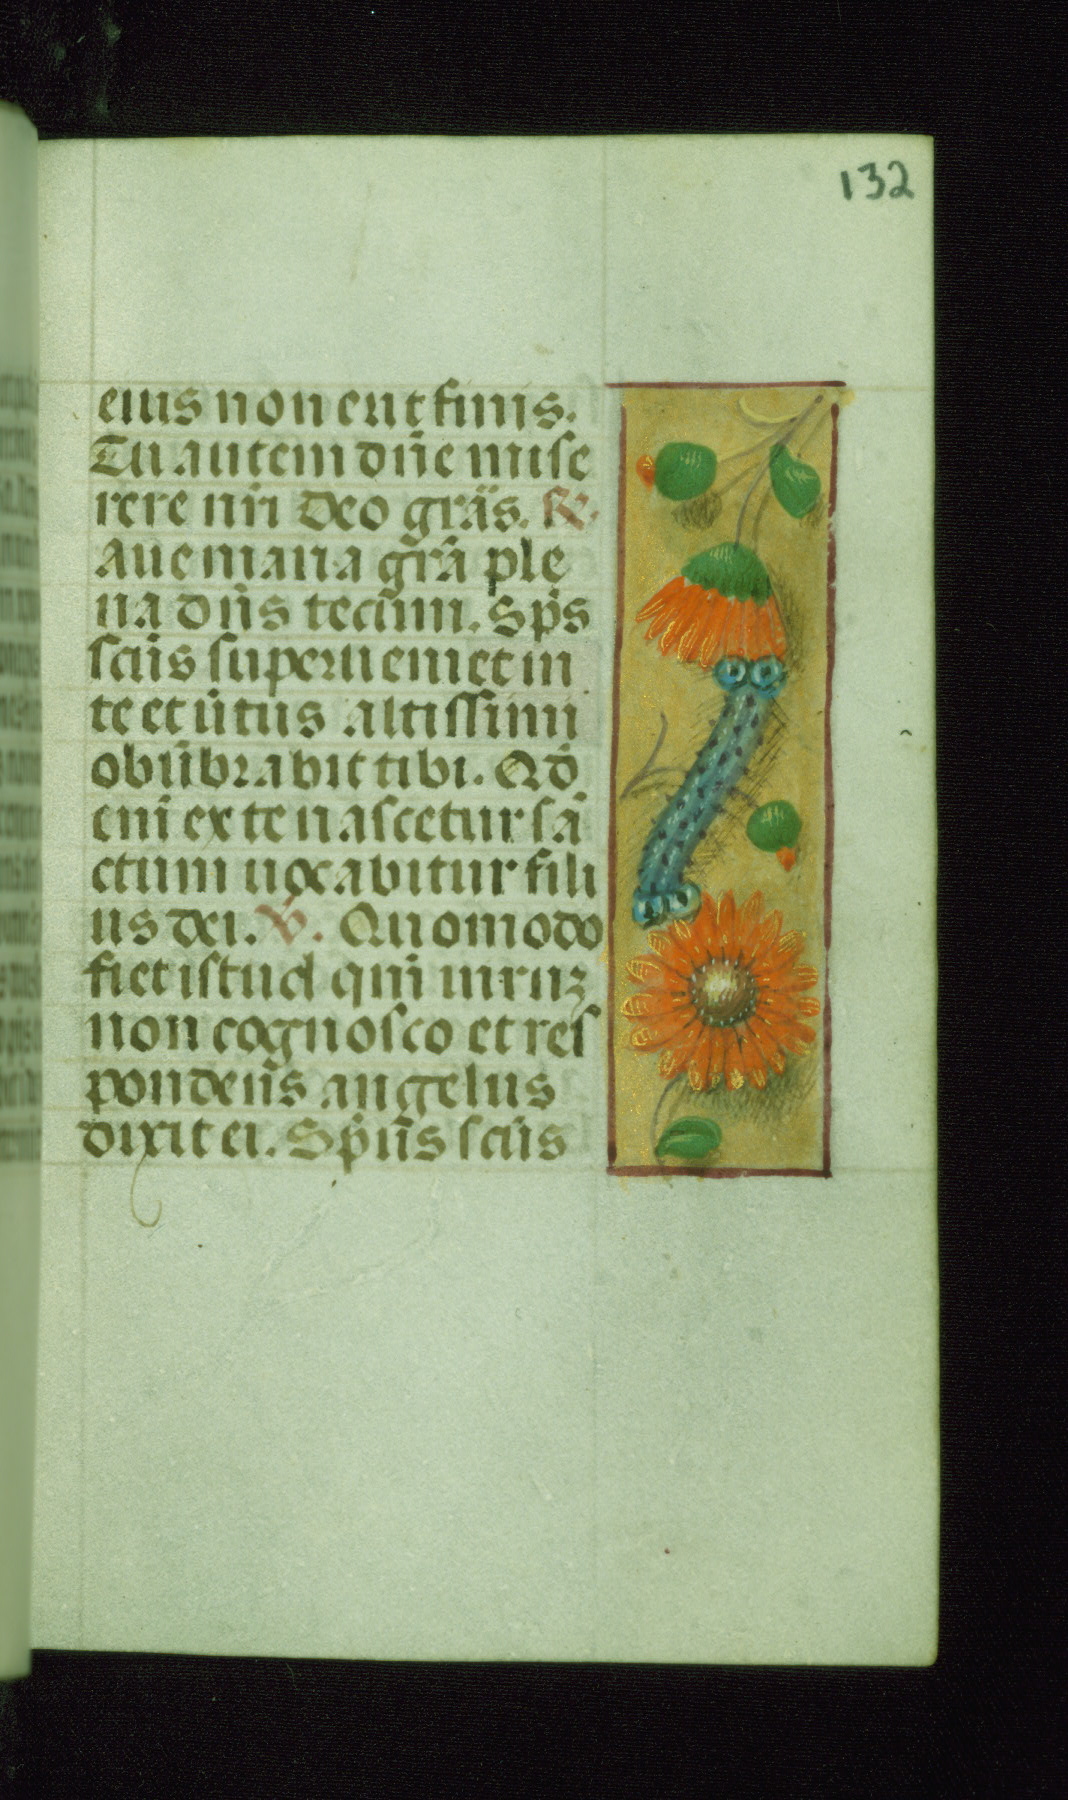 132
eius non erit finis.
Tu autem dn̄e mise
rere nr̄i Deo grās. ℟.
Aue maria grā ple
na dn̄s tecum. Sp̄s
sctūs superueniet in
te et u̇tus altissimi
obūbrabit tibi. Qd̄
eni̅ ex te nascetur sā
ctum uocabitur fili
us dei. ℣. Quomodo
fiet istud qm̄ uiruꝫ
non cognosco et res
pondens̄ angelus
dixit ei. Spūs sctūs